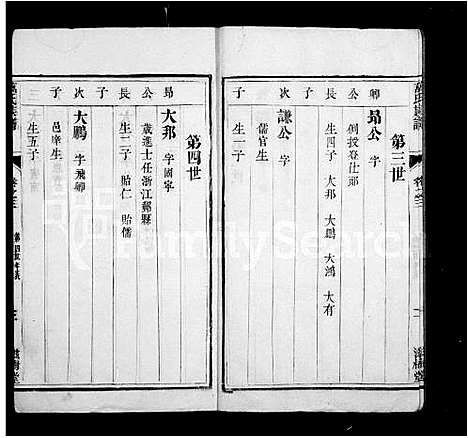 第三世
卿
昻公 字
例授登仕郎
生四子 大邦 大鵬 大鴻 大有
次子
謙公 字
儒官生
生一子
第四世
昻公長子
大邦 字國寧
歲進士任浙江
縣
生二子 貽仁 貽儒
次子
大鵬 字飛卿
邑庠生
生五子
三
FamilySearch